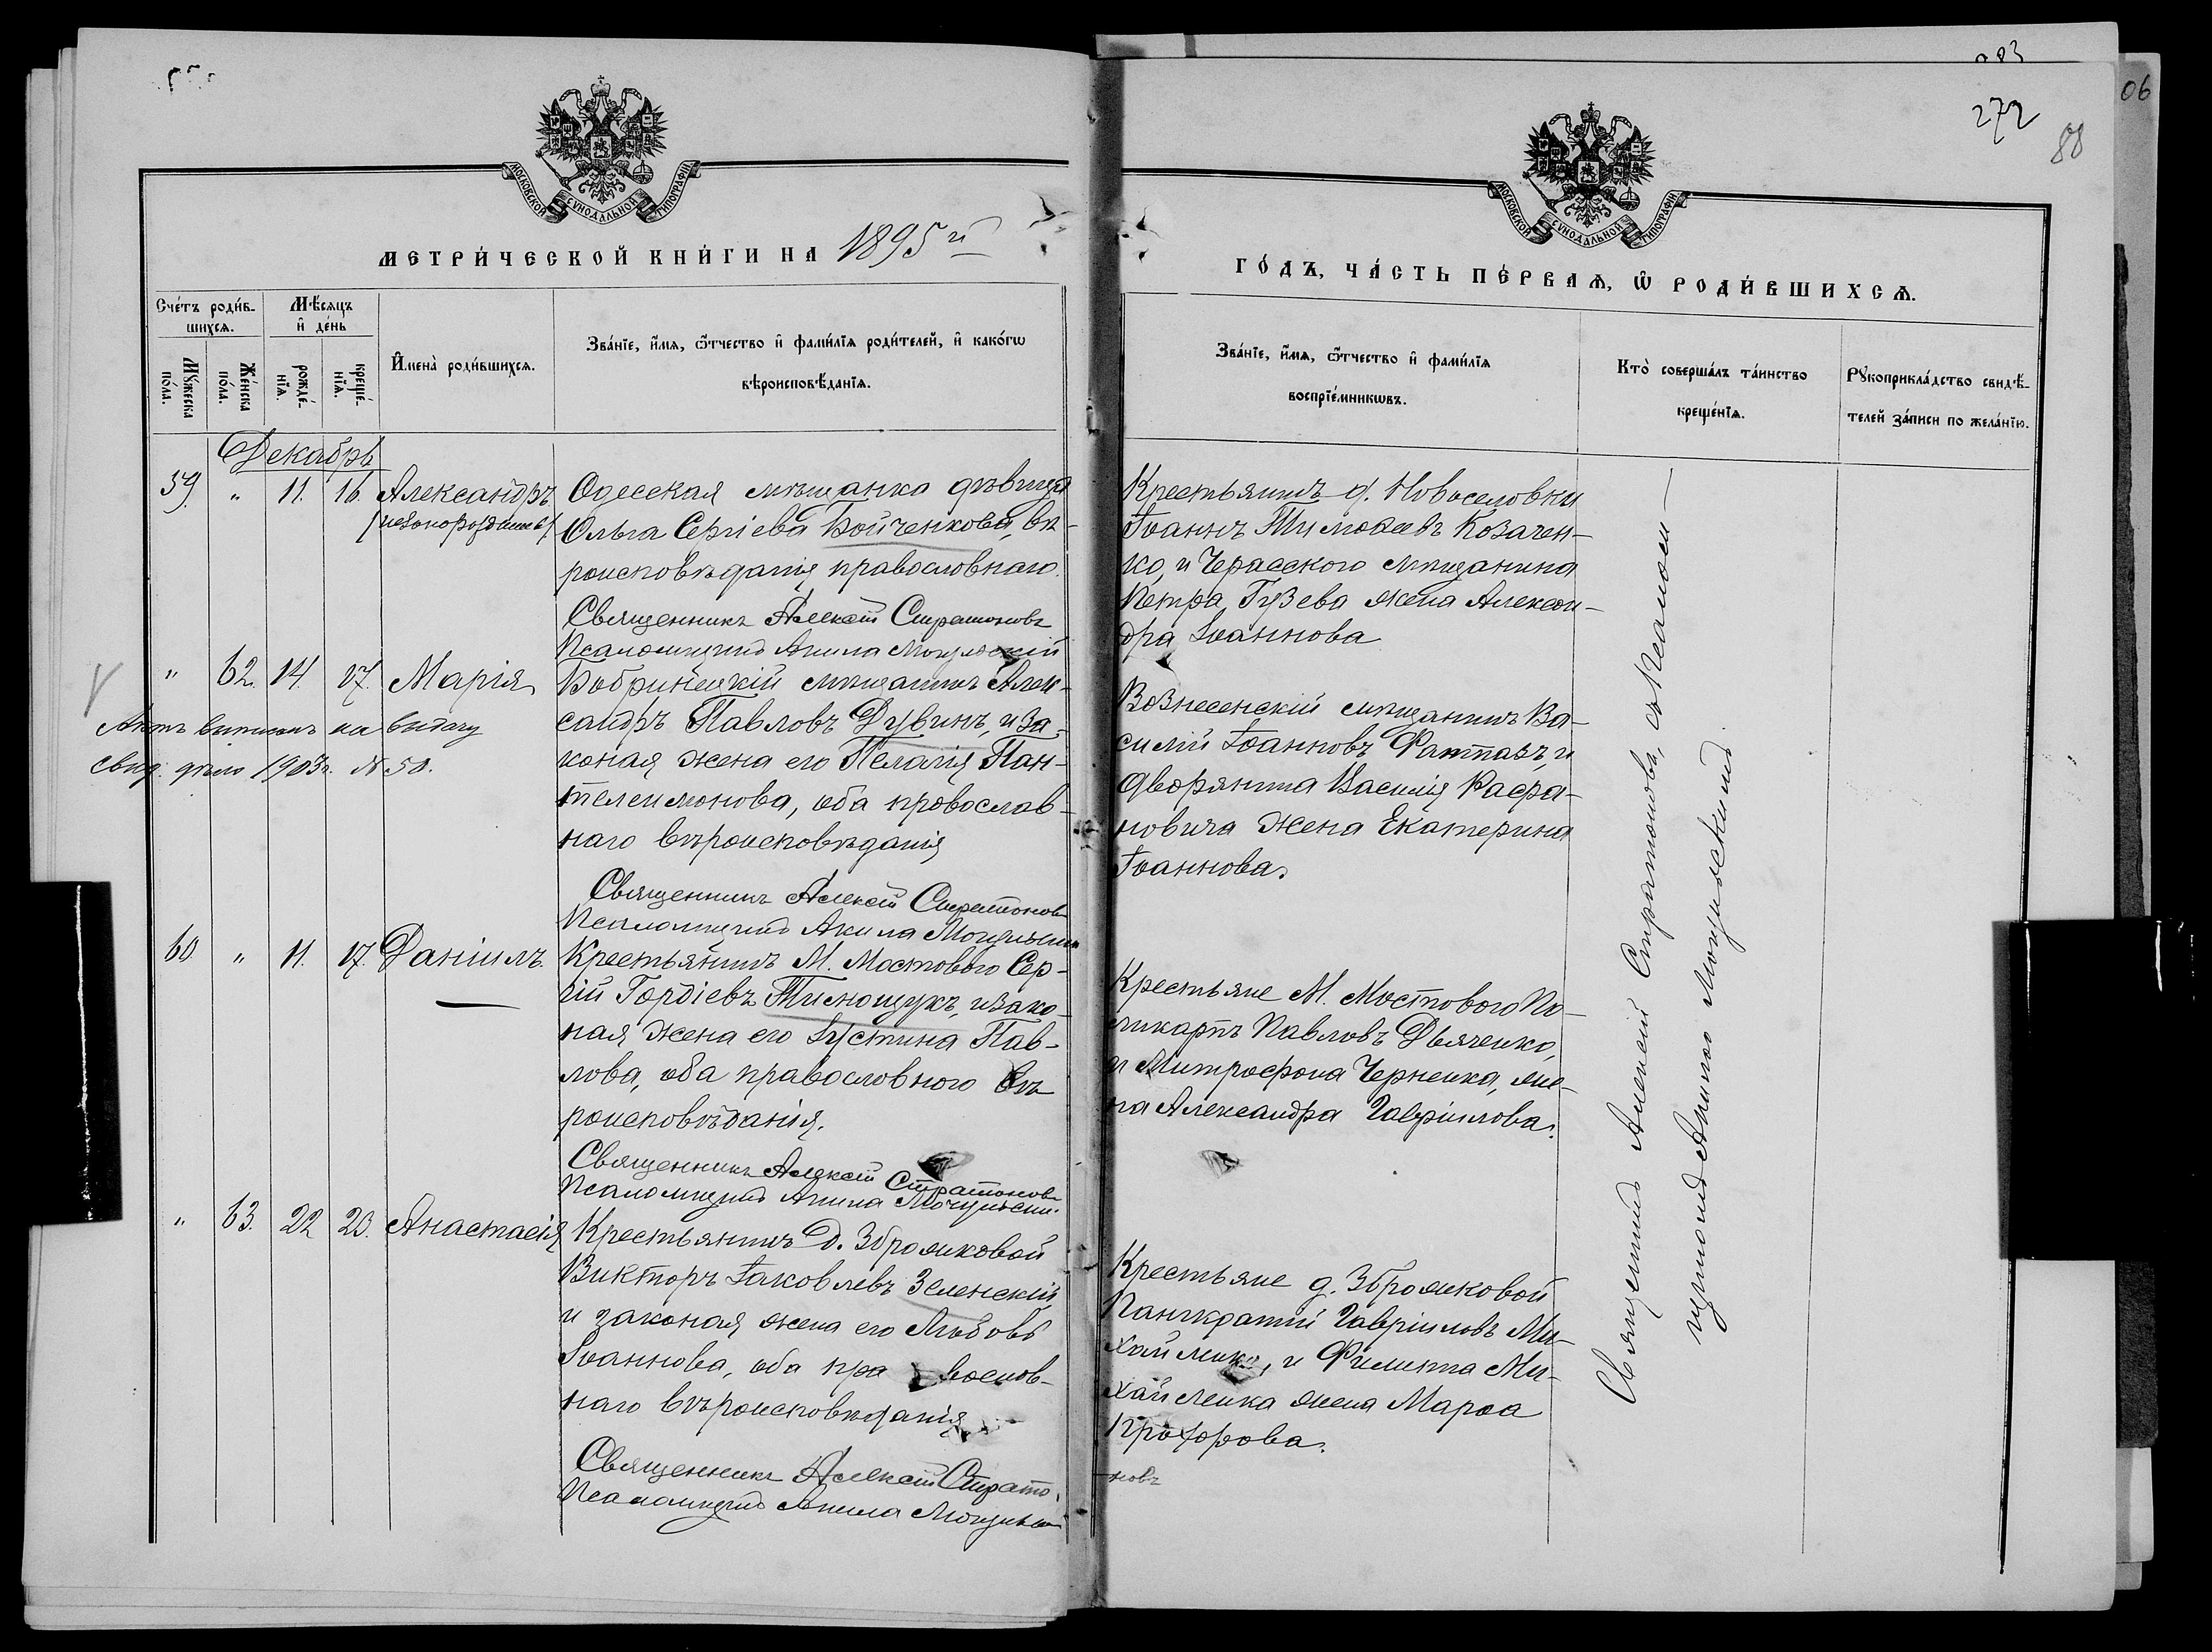 283
06
272
88
МОСКОВСКОЙ СѴНОДАЛЬНОЙ ТИПОГРАФІИ
МОСКОВСКОЙ СѴНОДАЛЬНОЙ ТИПОГРАФІИ
МЕТРИ́ЧЕСКОЙ КНИ́ГИ НА 1895й
ГО́ДЪ, ЧА́СТЬ ПЕ́РВАѦ, Ѡ҆ РОДИ́ВШИХСѦ.
Сче́тъ роди́в-
шихсѧ.
Мꙋ́жеска по́ла.
Же́нска по́ла.
Мѣ́сяцъ
и҆ де́нь
рожде́-
нїѧ.
креще́-
нїѧ.
И҆мена̀ роди́вшихсѧ.
Зва́нїе, и҆́мѧ, ѻ҆́тчество и҆ фами́лїѧ роди́телей, и҆ како́гѡ
вѣроисповѣ́данїѧ.
Зва́нїе, и҆́мѧ, ѻ҆́тчество и҆ фами́лїѧ
воспрїе́мникѡвъ.
Кто̀ соверша́лъ та́инство
креще́нїѧ.
Рꙋкоприкла́дство свидѣ́-
телей за́писи по жела́нїю.
Декабрь
59. " 11. 16. Александръ
(незаконорожденный)
Одесская мѣщанка дѣвица
Ольга Сергіева Бойченкова, вѣ-
роисповѣданія православнаго.
Священникъ Алексій Стратоновъ
Псаломщикъ Акила Могульскій
Крестьянинъ д. Новоселовки
Іоаннъ Тимоѳеевъ Козачен-
ко, и Черасского мѣщанина
Петра Гузева жена Алексан-
дра Іоаннова
" 62. 14. 17. Марія
Актъ выписанъ на выдачу
свид. дѣло 1903г. № 50.
Бобринецкій мѣщанинъ Алек-
сандръ Павловъ Дувинъ, и за-
коная жена его Пелагія Пан-
телеимонова, оба православ-
наго вѣроисповѣданія
Священникъ Алексій Стратоновъ
Псаломщикъ Акила Могульскій
Вознесенскій мѣщанинъ Ва-
силій Іоанновъ Фаттавъ, и
дворянина Василія Касра-
новича жена Екатерина
Іоаннова.
60. " 11. 17. Даніилъ.
Крестьянинъ М. Мостового Сер-
гій Гордіевъ Тимощукъ, и зако-
ная жена его Іустина Пав-
лова, оба православного вѣ-
роисповѣданія.
Священникъ Алексій Стратоновъ
Псаломщикъ Акила Могульскій
Крестьяне М. Мостового По-
ликарпъ Павловъ Дьяченко,
и Митрофана Черненка, же-
на Александра Гавріилова.
" 63. 22 23. Анастасія
Крестьянинъ д. Зброжковой
Викторъ Іаковлевъ Зеленскій,
и законая жена его Любовь
Іоаннова, оба православ-
наго вѣроисповѣданія
Священникъ Алексій Страто-
новъ
Псаломщикъ Акила Могульскій
Крестьяне д. Зброжковой
Панкратій Гавріиловъ Ми-
хайленко, и Филиппа Ми-
хайленка жена Марѳа
Прохорова.
Священникъ Алексій Стратоновъ, съ Псалом-
щикомъ Акилою Могульскимъ.